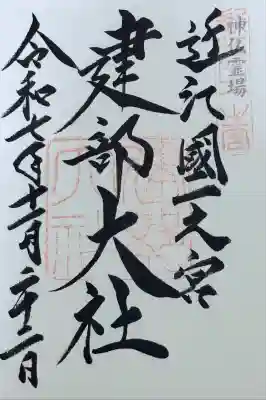 神仏霊場
近江國一之宮
建部大社
令和七年十一月二十二日